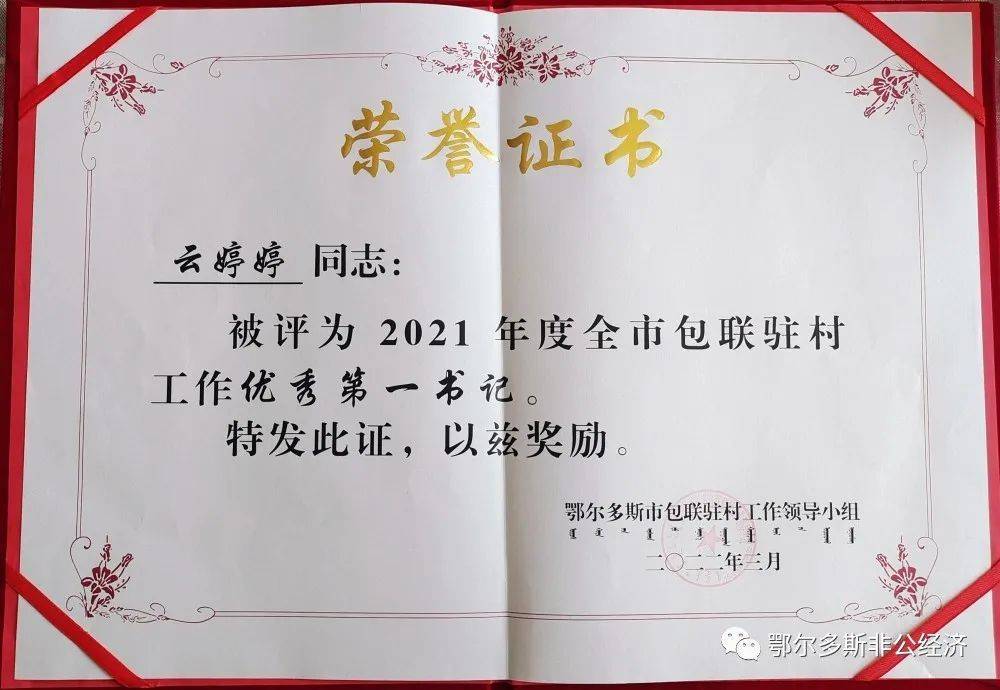 荣誉证书
云婷婷 同志：
被评为 2021 年度全市包联驻村
工作优秀第一书记。
特发此证，以兹奖励。
鄂尔多斯市包联驻村工作领导小组
二〇二二年三月
鄂尔多斯非公经济